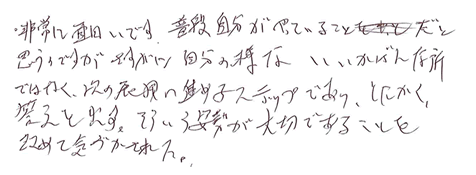 ・非常に面白いです。普段自分がやっていることだと
思うのですが さすがに 自分の様な いいかげんな所
ではなく、次の展開への ステップであり、とにかく、
答えを出す。そういう姿勢が大切であることを
改めて気づかされた。